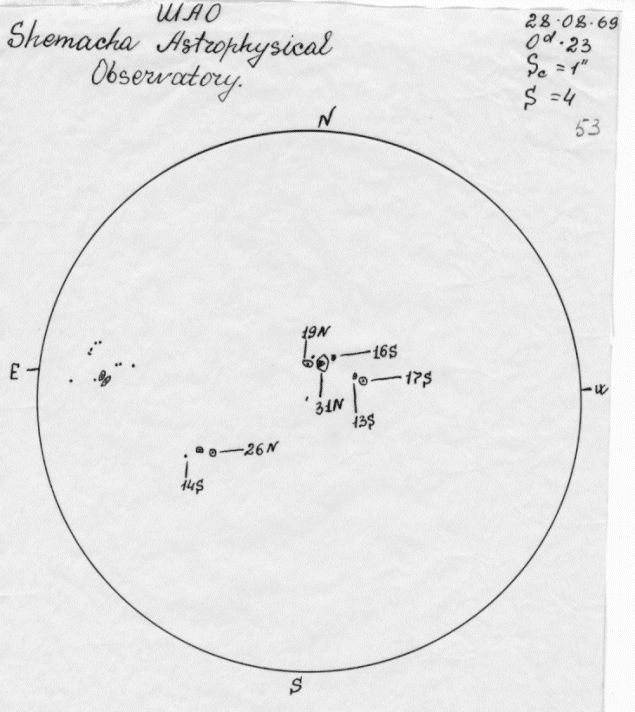 ШАО
Shemacha Astrophysical
Observatory.
28.08.69
0ᵈ.23
Sc = 1"
S = 4
53
N
19N
16S
E
17S
W
31N
13S
26N
14S
S